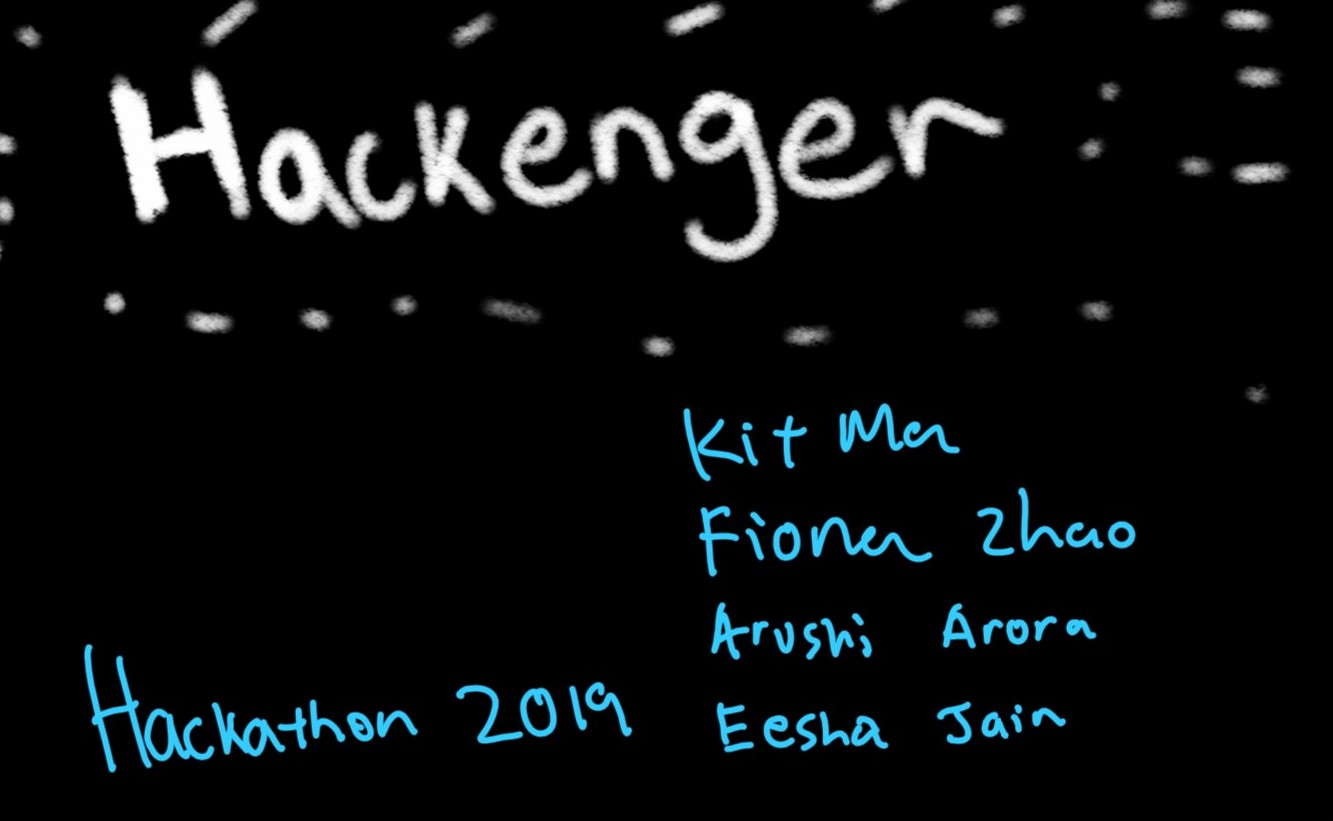 Hackenger
Kit Ma
Fiona Zhao
Arushi Arora
Eesha Jain
Hackathon 2019